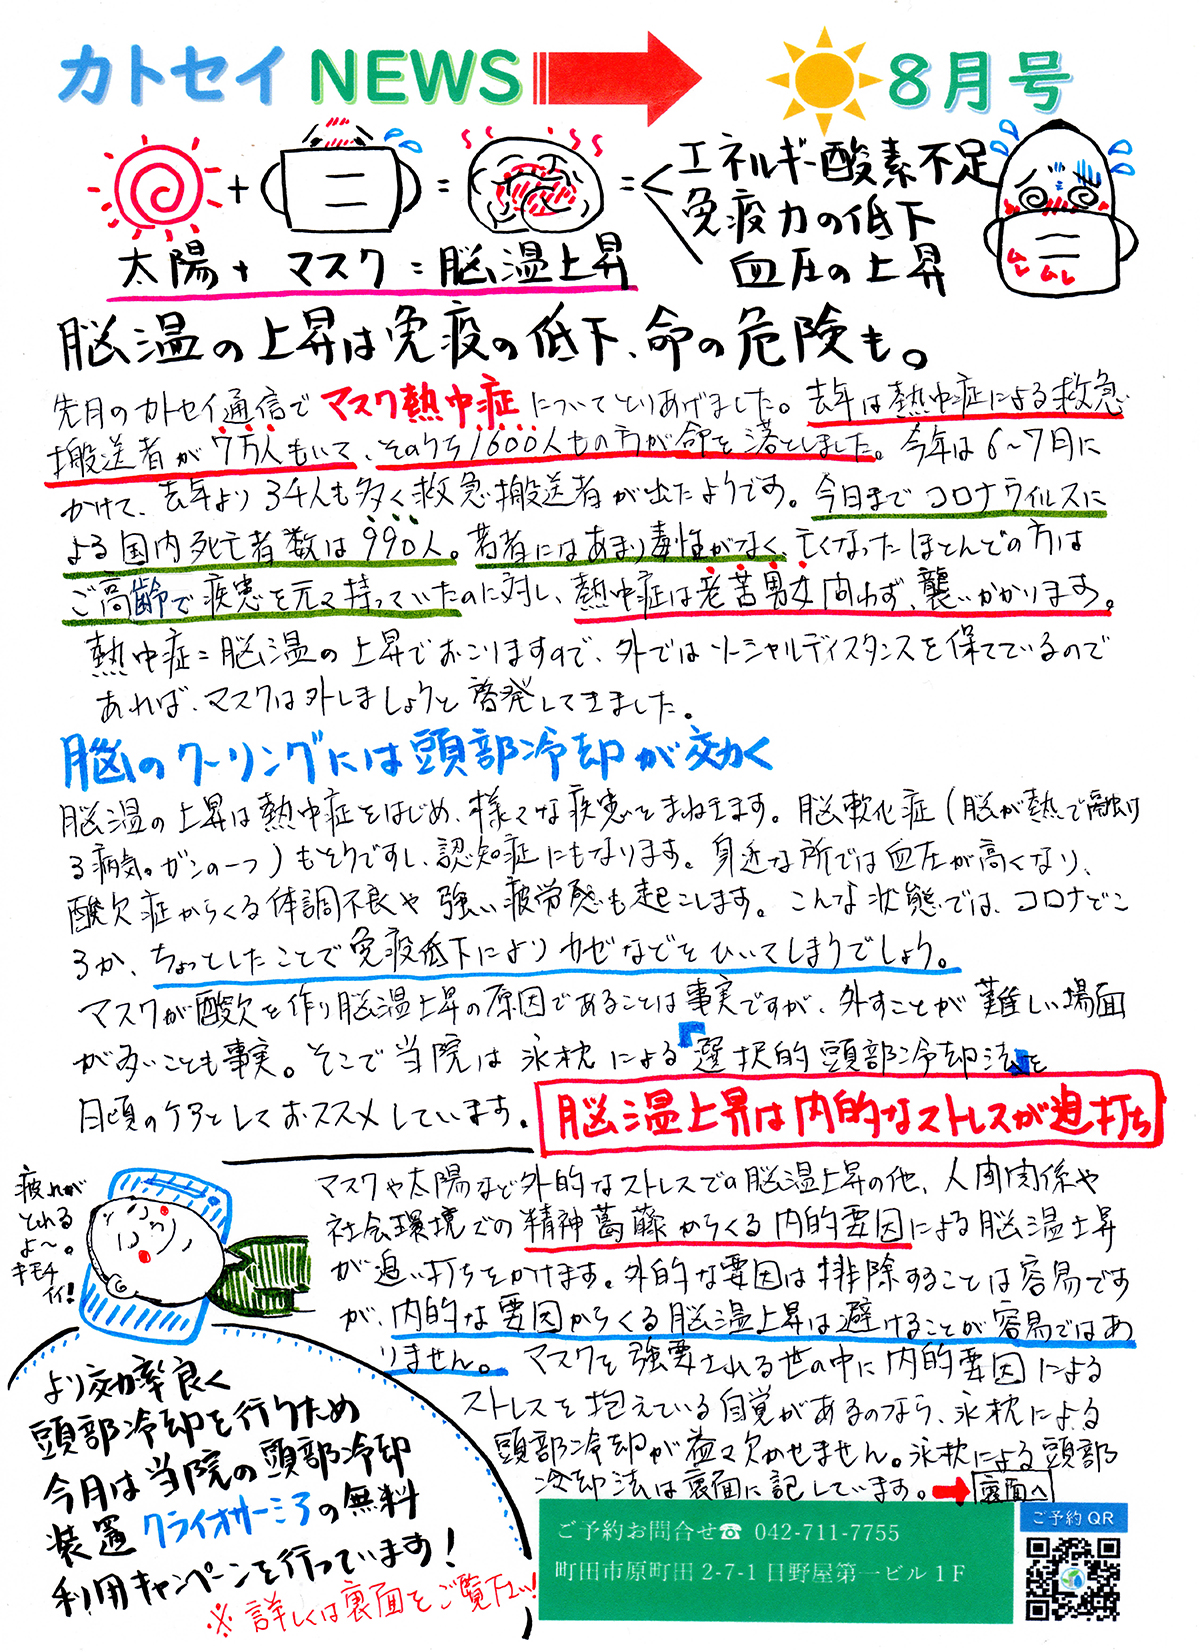 カトセイ NEWS 8月号
+ = =
太陽 + マスク = 脳温上昇
エネルギー酸素不足
免疫力の低下
血圧の上昇
ムレ ムレ
脳温の上昇は免疫の低下、命の危険も。
先月のカトセイ通信でマスク熱中症についてとりあげました。去年は熱中症による救急
搬送者が7万人もいて、そのうち1600人もの方が命を落としました。今年は6〜7月に
かけて、去年より3千人も多く救急搬送者が出たようです。今日までコロナウイルスに
よる国内死亡者数は990人。若者にはあまり毒性がなく、亡くなったほとんどの方は
ご高齢で疾患を元々持っていたのに対し、熱中症は老若男女問わず、襲いかかります。
熱中症=脳温の上昇でおこりますので、外ではソーシャルディスタンスを保てているので
あれば、マスクは外しましょうと啓発してきました。
脳のクーリングには頭部冷却が効く
脳温の上昇は熱中症をはじめ、様々な疾患をまねきます。脳軟化症(脳が熱で融け
る病気。ガンの一つ)もそうですし、認知症にもなります。身近な所では血圧が高くなり、
酸欠症からくる体調不良や強い疲労感も起こします。こんな状態では、コロナどこ
ろか、ちょっとしたことで免疫低下によりカゼなどをひいてしまうでしょう。
マスクが酸欠を作り脳温上昇の原因であることは事実ですが、外すことが難しい場面
が多いことも事実。そこで当院は氷枕による『選択的頭部冷却法』を
日頃のケアとしておススメしています。
脳温上昇は内的なストレスが追打ち
マスクや太陽など外的なストレスでの脳温上昇の他、人間関係や
社会環境での精神葛藤からくる内的要因による脳温上昇
が追い打ちをかけます。外的な要因は排除することは容易です
が、内的な要因からくる脳温上昇は避けることが容易ではあ
りません。マスクを強要される世の中に内的要因による
ストレスを抱えている自覚があるのなら、氷枕による
頭部冷却が益々欠かせません。氷枕による頭部
冷却法は裏面に記しています。 裏面へ
疲れが
とれる
よ〜。
キモチ
イイ!
より効率良く
頭部冷却を行うため
今月は当院の頭部冷却
装置クライオサーミアの無料
利用キャンペーンを行っています!
※詳しくは裏面をご覧下さい!
ご予約お問合せ☎ 042-711-7755
町田市原町田 2-7-1 日野屋第一ビル 1F
ご予約 QR